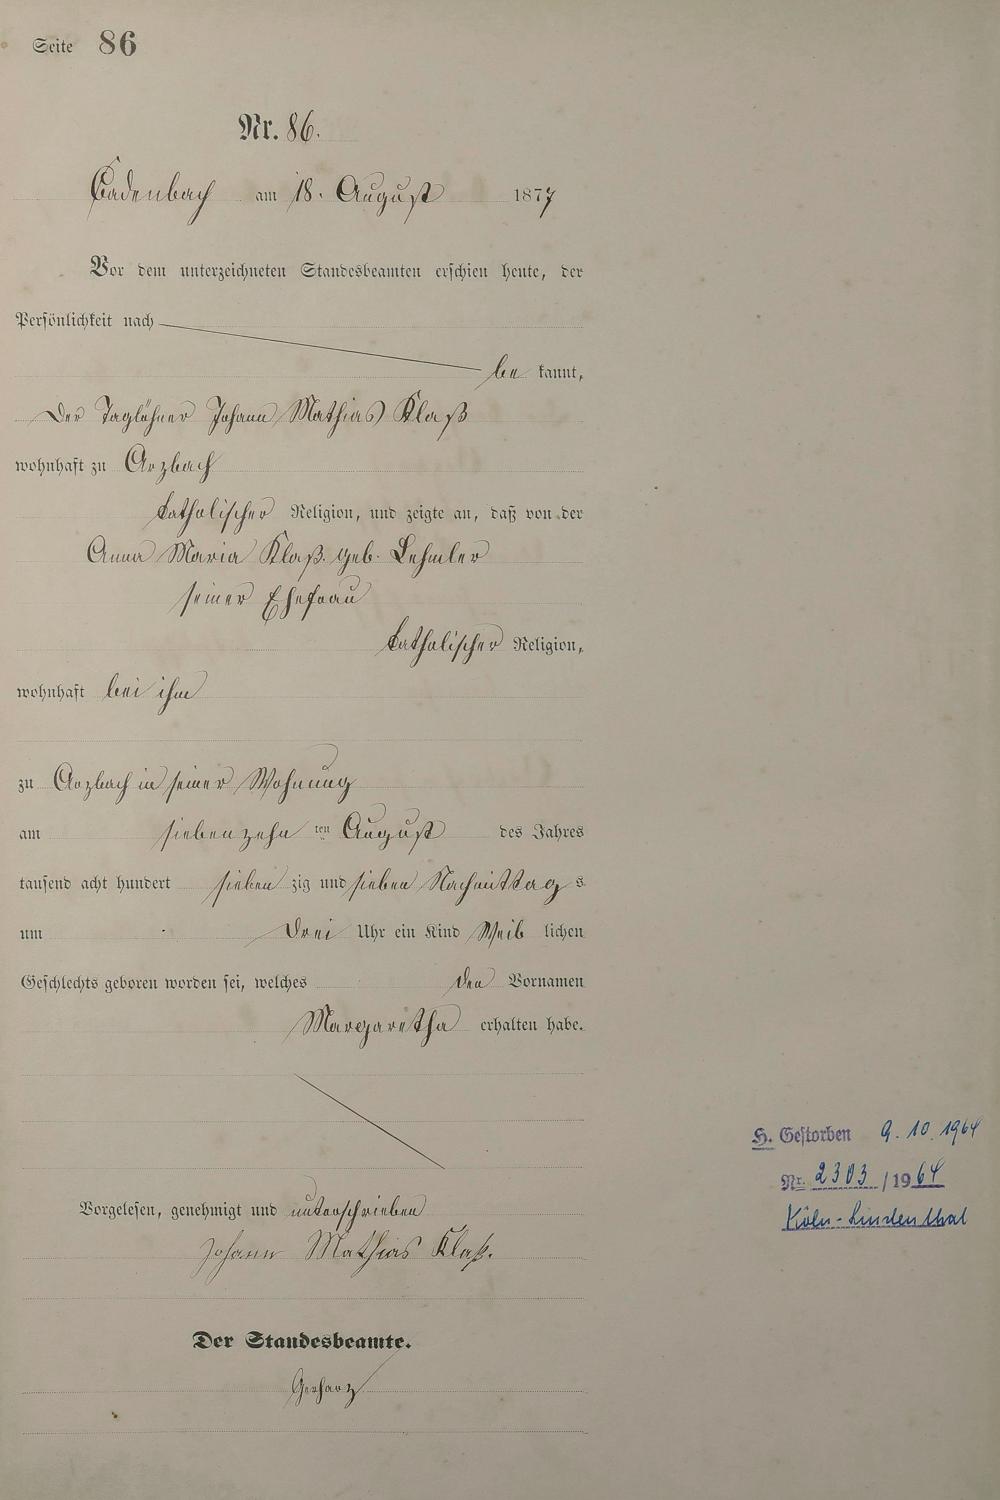 Seite 86
Nr. 86.
Cadenbach am 18. August 1877
Vor dem unterzeichneten Standesbeamten erschien heute, der
Persönlichkeit nach
be kannt,
Der Taglöhner Johann Mathias Klaß
wohnhaft zu Arzbach
katholischer Religion, und zeigte an, daß von der
Anna Maria Klaß. geb. Lehmler
seiner Ehefrau
katholischer Religion,
wohnhaft bei ihm
zu Arzbach in seiner Wohnung
am siebenzehn ten August des Jahres
tausend acht hundert sieben zig und sieben Nachmittag s
um Drei Uhr ein Kind Weib lichen
Geschlechts geboren worden sei, welches den Vornamen
Margaretha erhalten habe.
Vorgelesen, genehmigt und unterschrieben
Johann Mathias Klaß.
Der Standesbeamte.
Gerharz
H. Gestorben 9.10.1964
Nr. 2303 /1964
Köln-Lindenthal